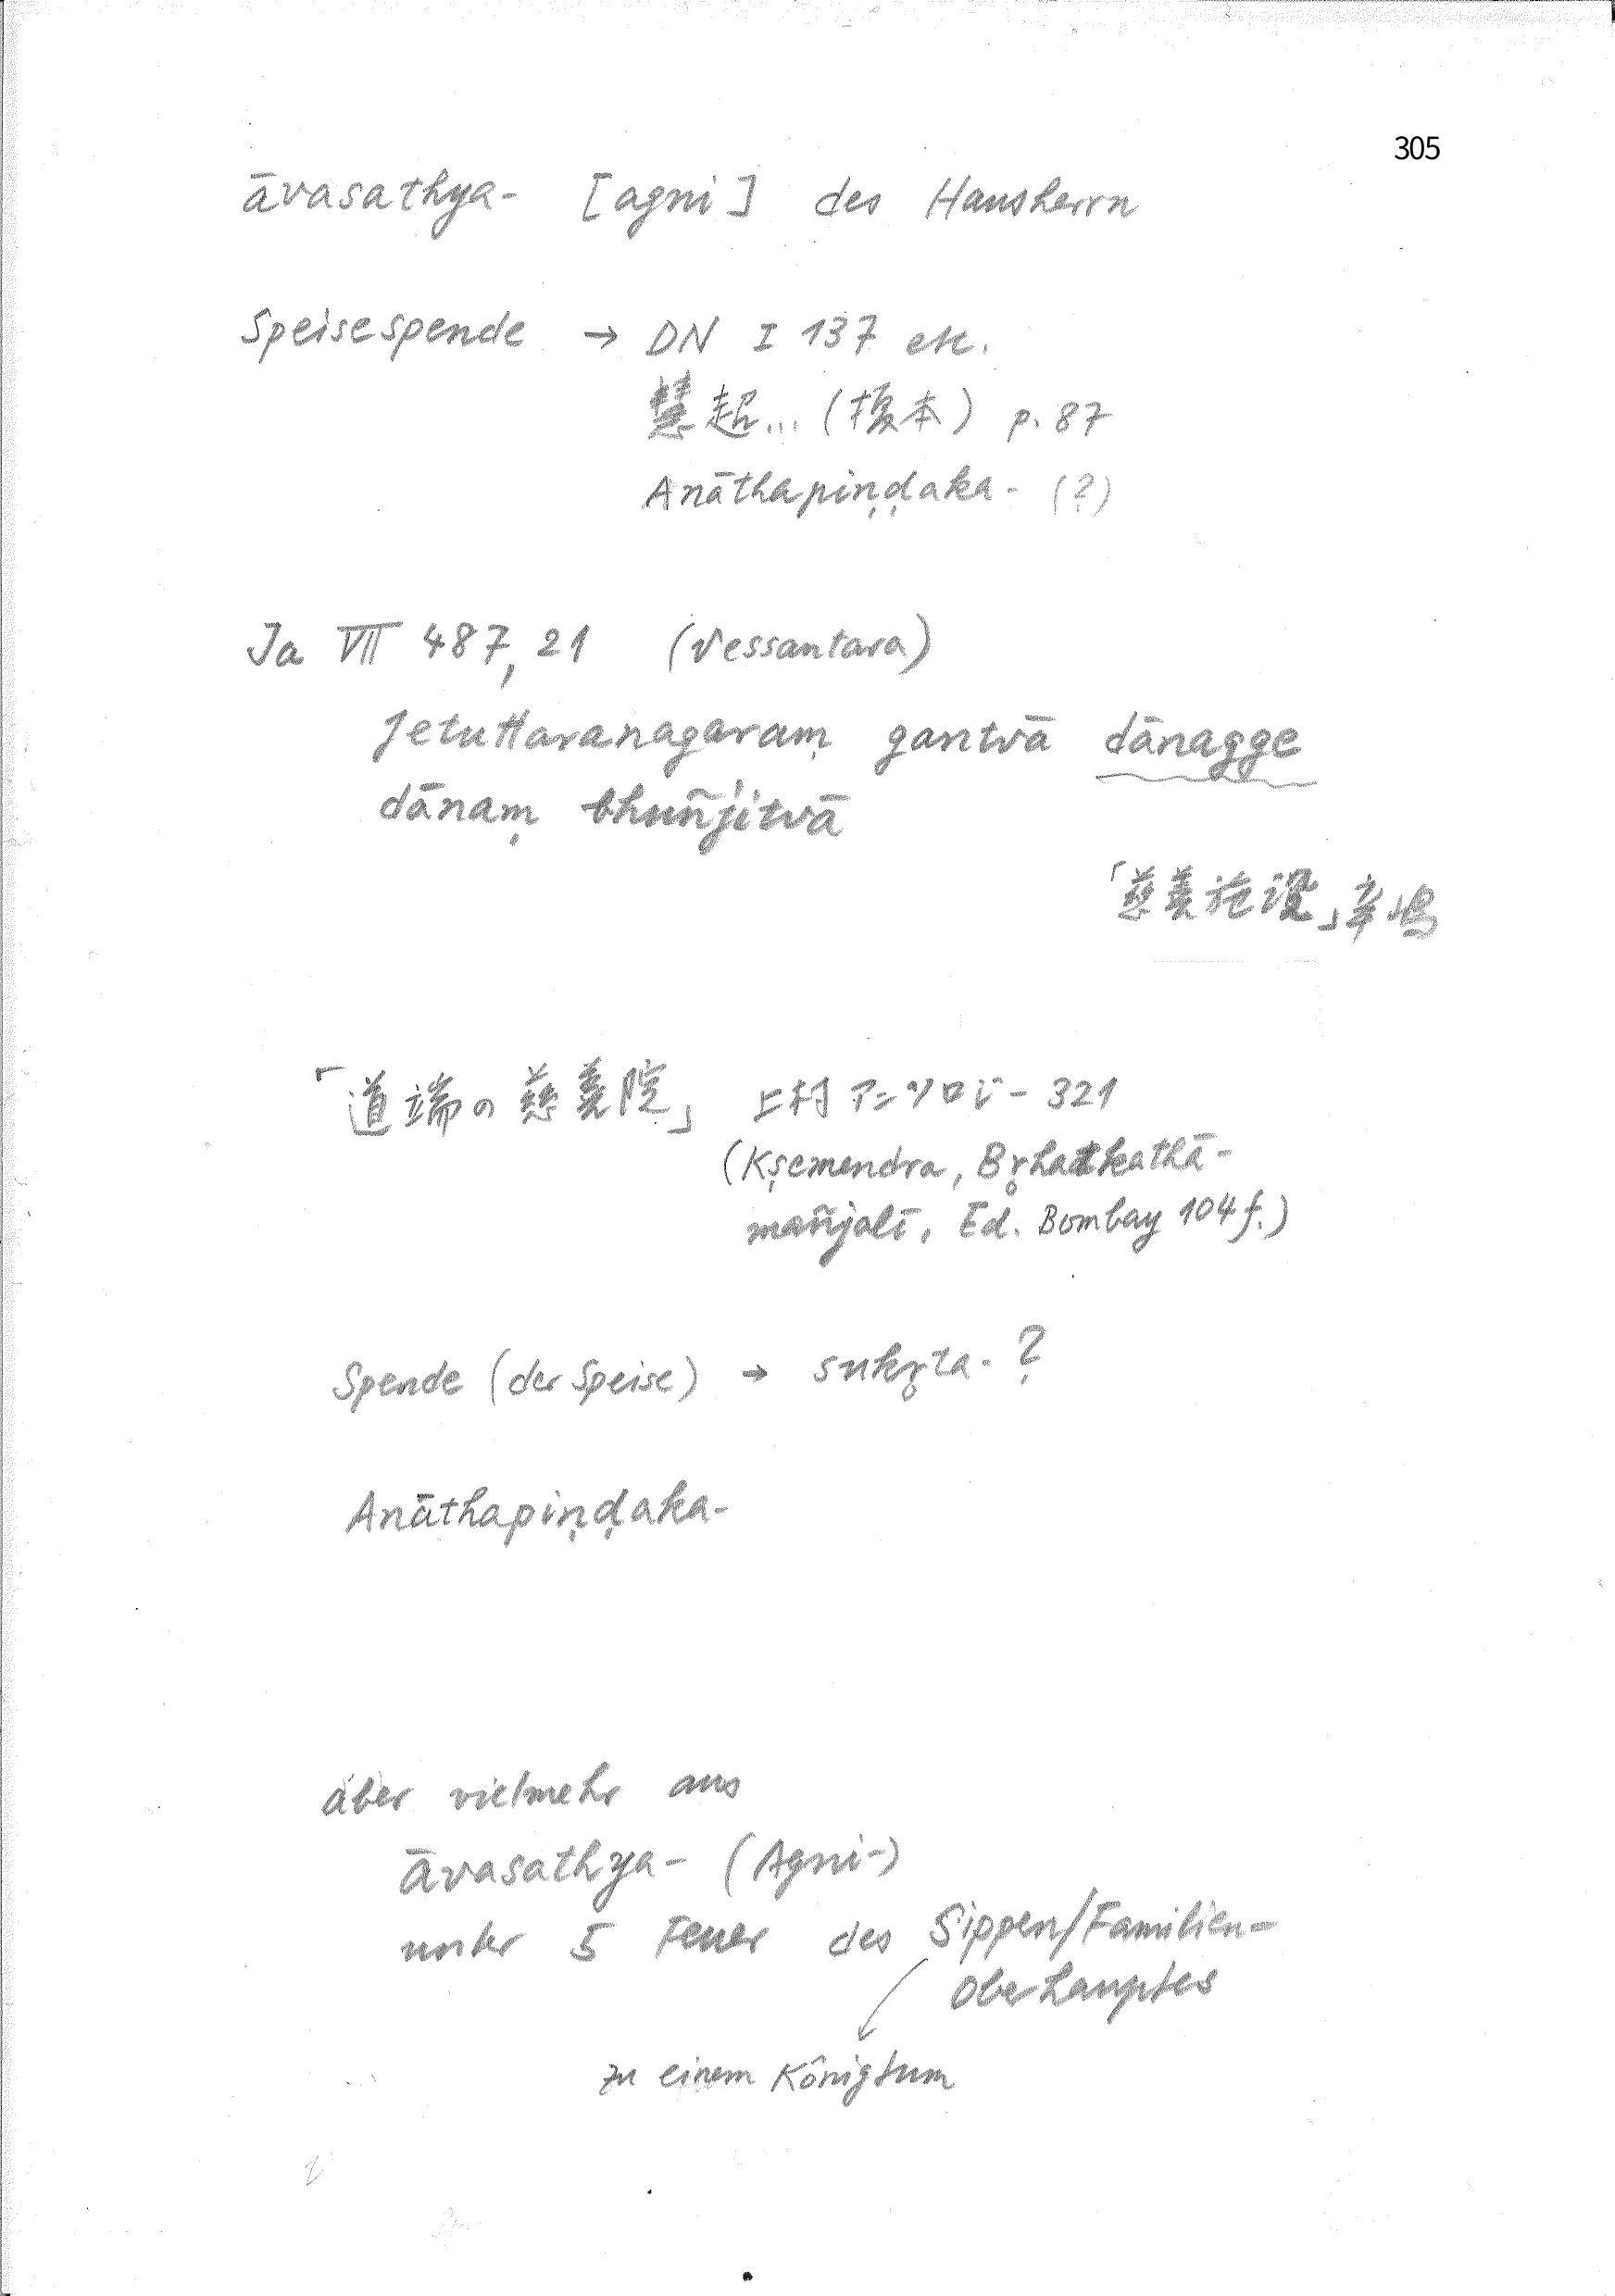 305
āvasathya- [agni] des Hausherrn
Speisespende → DN I 137 etc.
慧超...(榎本) p. 87
Anāthapiṇḍaka- (?)
Ja VII 487, 21 (Vessantara)
Jetuttaranagaraṃ gantvā dānagge
dānaṃ bhuñjitvā
「慈善施設」辛嶋
「道端の慈善院」 上村 アンソロジー 321
(Kṣemendra, Br̥hatkathā-
mañjalī, Ed. Bombay 104 f.)
Spende (der Speise) → sukr̥ta- ?
Anāthapiṇḍaka-
aber vielmehr aus
āvasathya- (Agni-)
unter 5 Feuer des Sippen/Familien-
Oberhauptes
zu einem Königtum